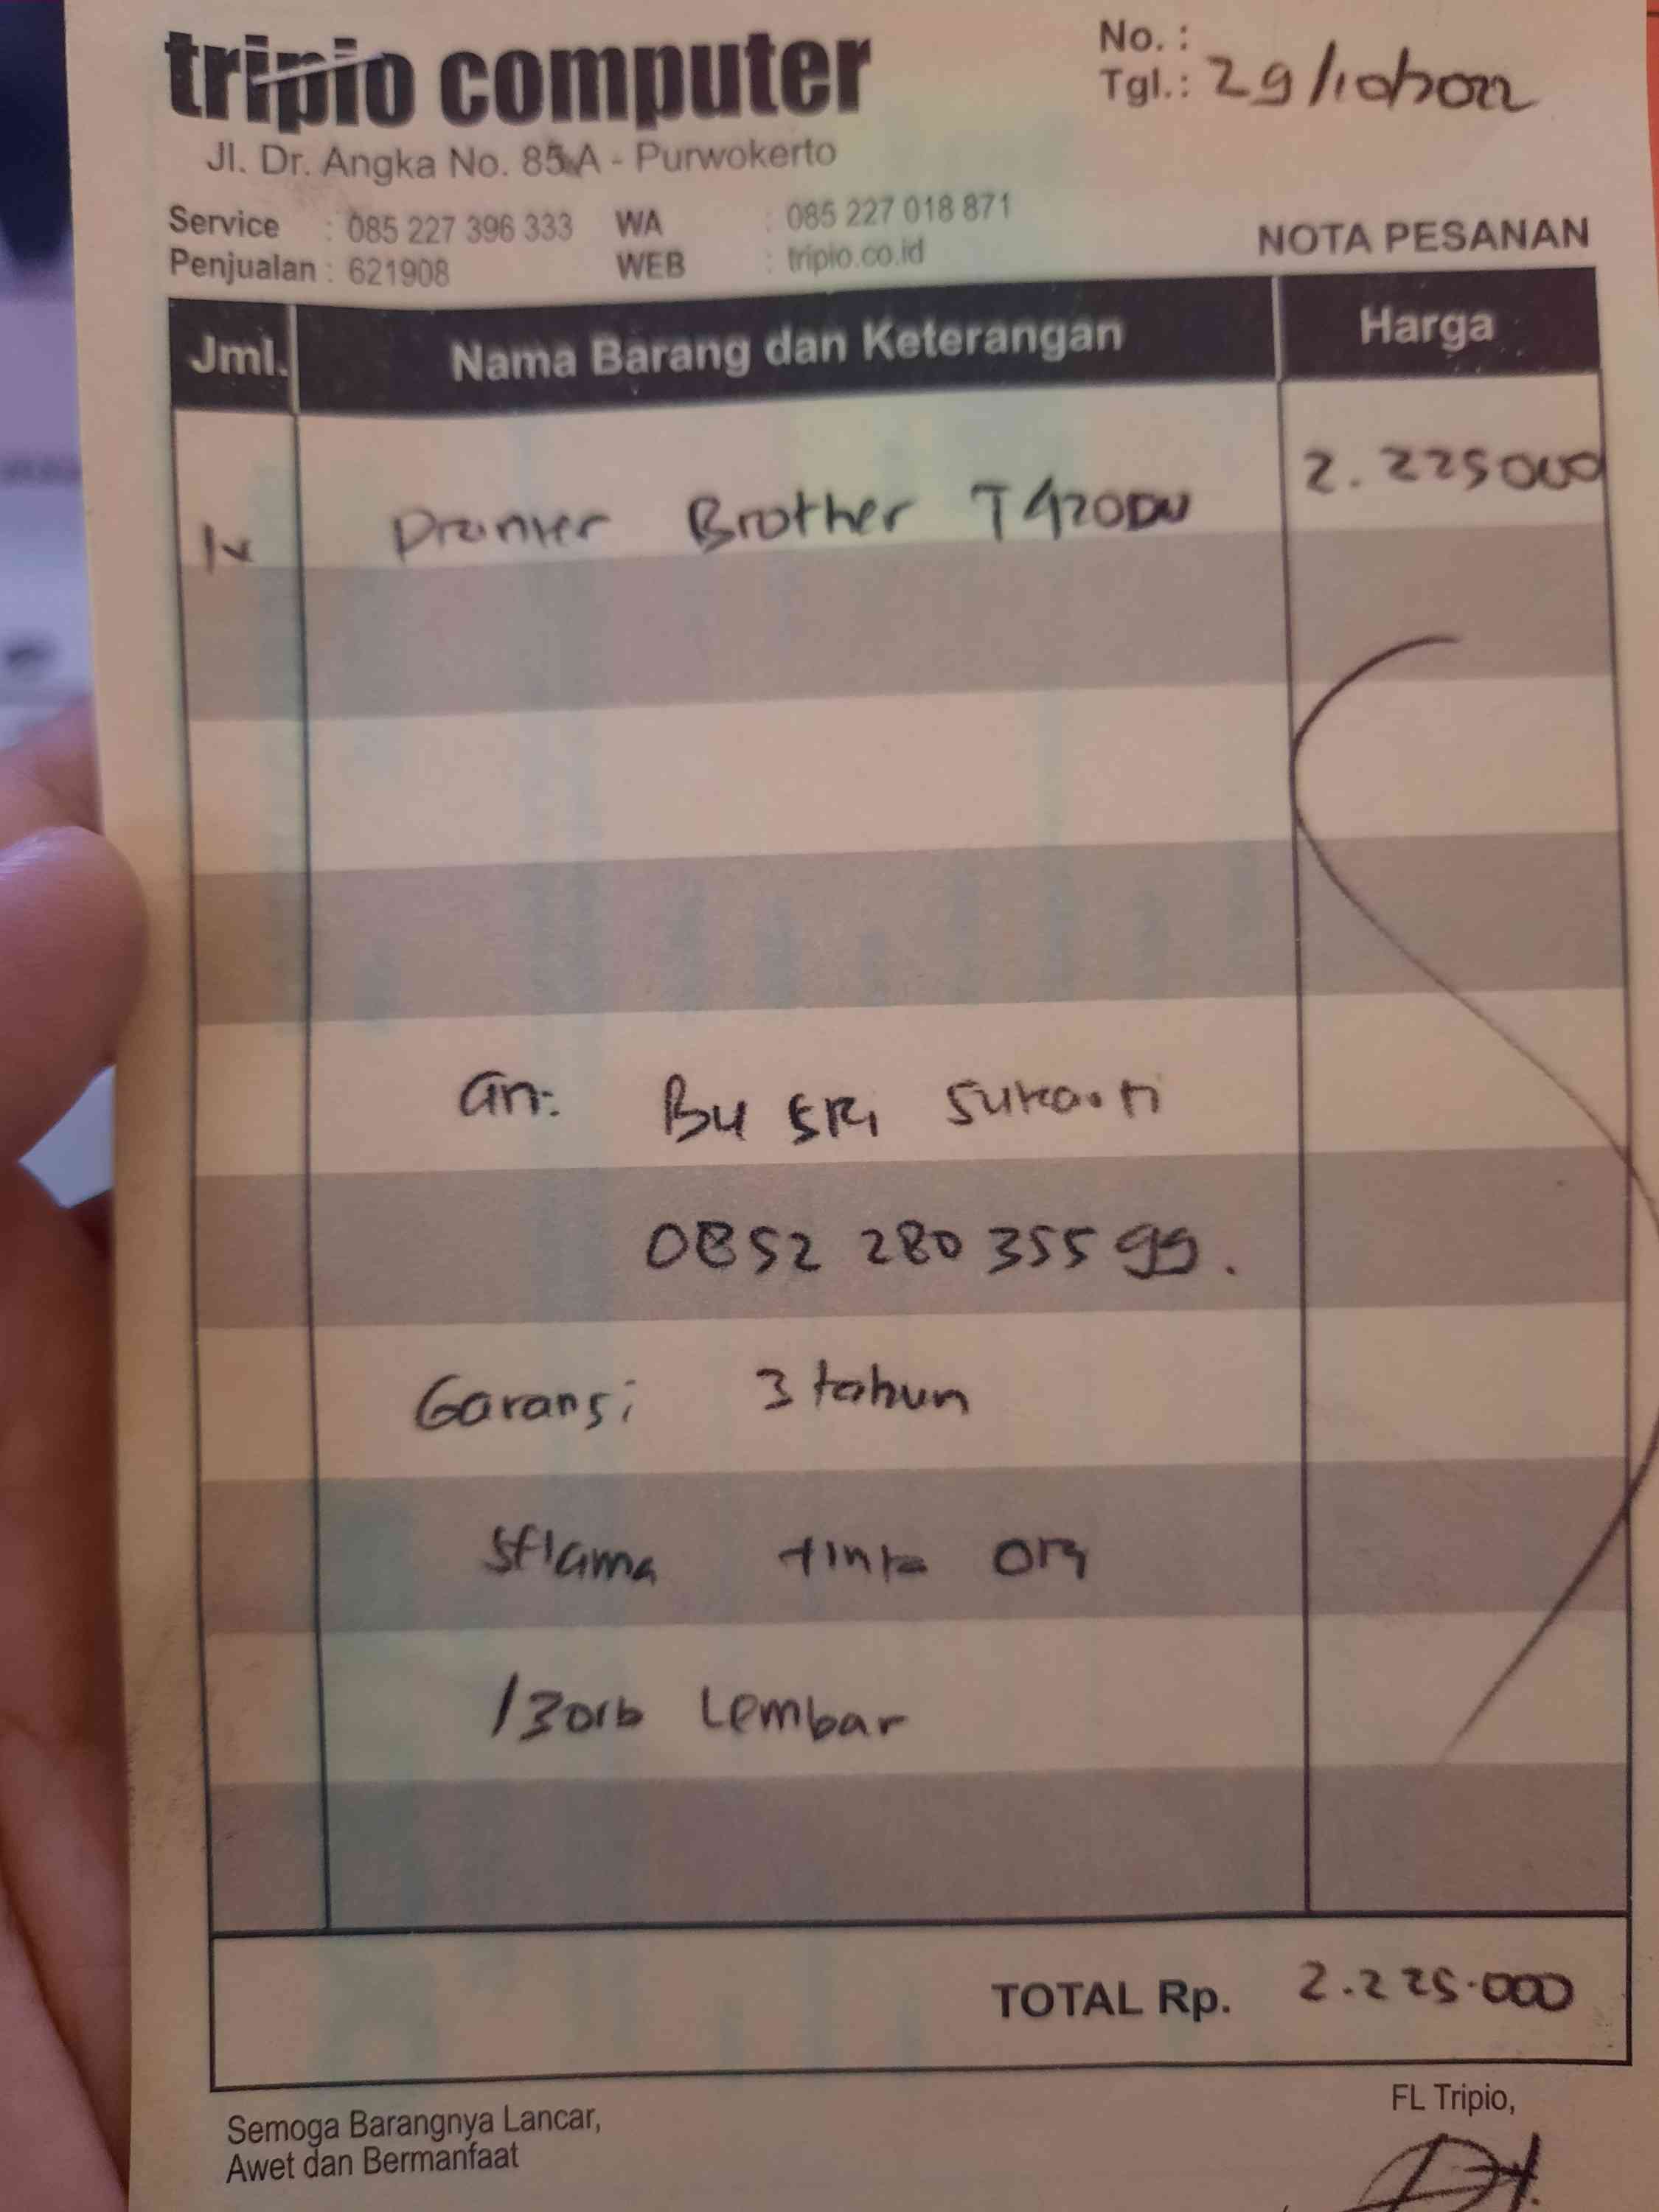 tripio computer
Jl. Dr. Angka No. 85 A - Purwokerto
No. :
Tgl.: 29/10/2022
Service : 085 227 396 333 WA : 085 227 018 871
Penjualan : 621908 WEB : tripio.co.id
NOTA PESANAN
Jml. Nama Barang dan Keterangan Harga
1 Printer Brother T420DW 2.225000
an: Bu SRi
0852 280 355 99.
Garansi 3 tahun
Slama tinta Ori
/30rb Lembar
TOTAL Rp. 2.225.000
Semoga Barangnya Lancar,
Awet dan Bermanfaat
FL Tripio,